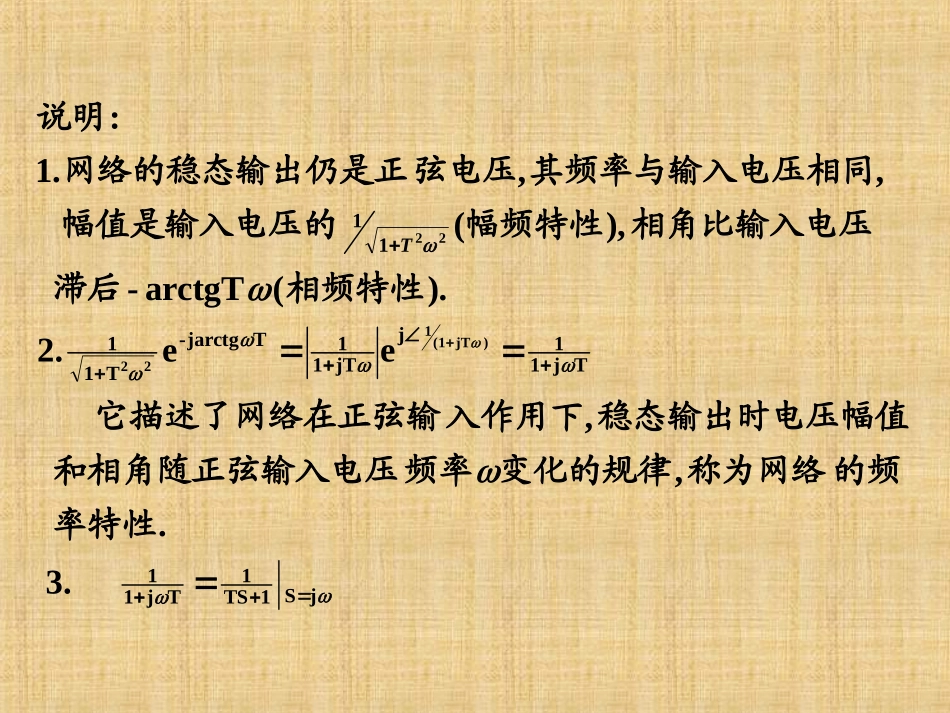 说明:
1.网络的稳态输出仍是正弦电压,其频率与输入电压相同,
幅值是输入电压的 1/√(1+T²ω²) (幅频特性),相角比输入电压
滞后-arctgTω(相频特性).
2. 1/√(1+T²ω²) e^(-jarctgωT) = |1/(1+jTω)| e^(j∠1/(1+jTω)) = 1/(1+jωT)
它描述了网络在正弦输入作用下,稳态输出时电压幅值
和相角随正弦输入电压频率ω变化的规律,称为网络的频
率特性.
3. 1/(1+jωT) = 1/(TS+1) |S=jω